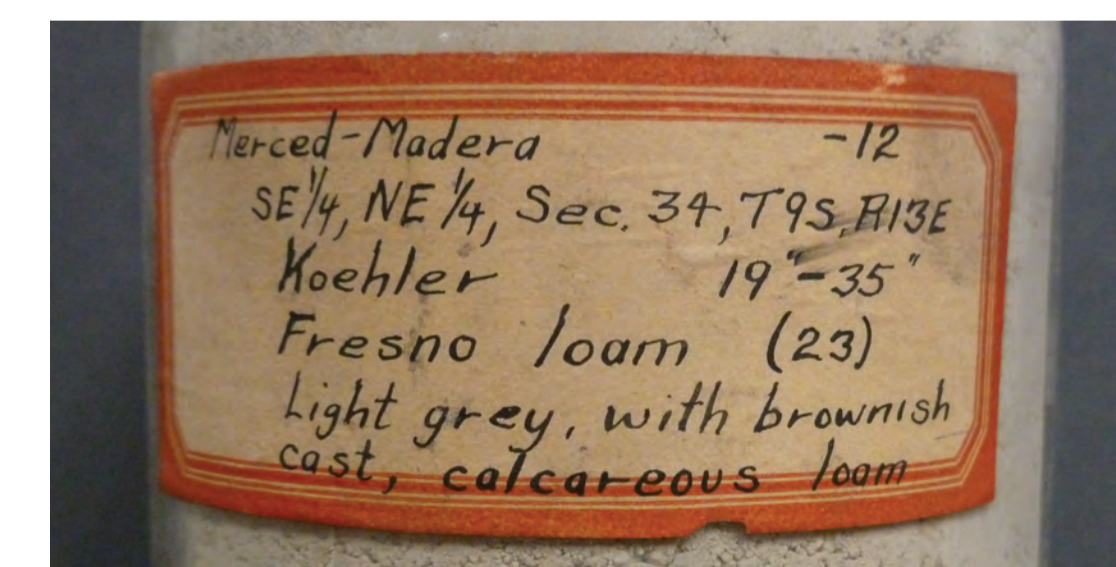 Merced-Madera -12
SE 1/4, NE 1/4, Sec. 34, T9S, R13E
Koehler 19"-35"
Fresno loam (23)
Light grey, with brownish
cast, calcareous loam